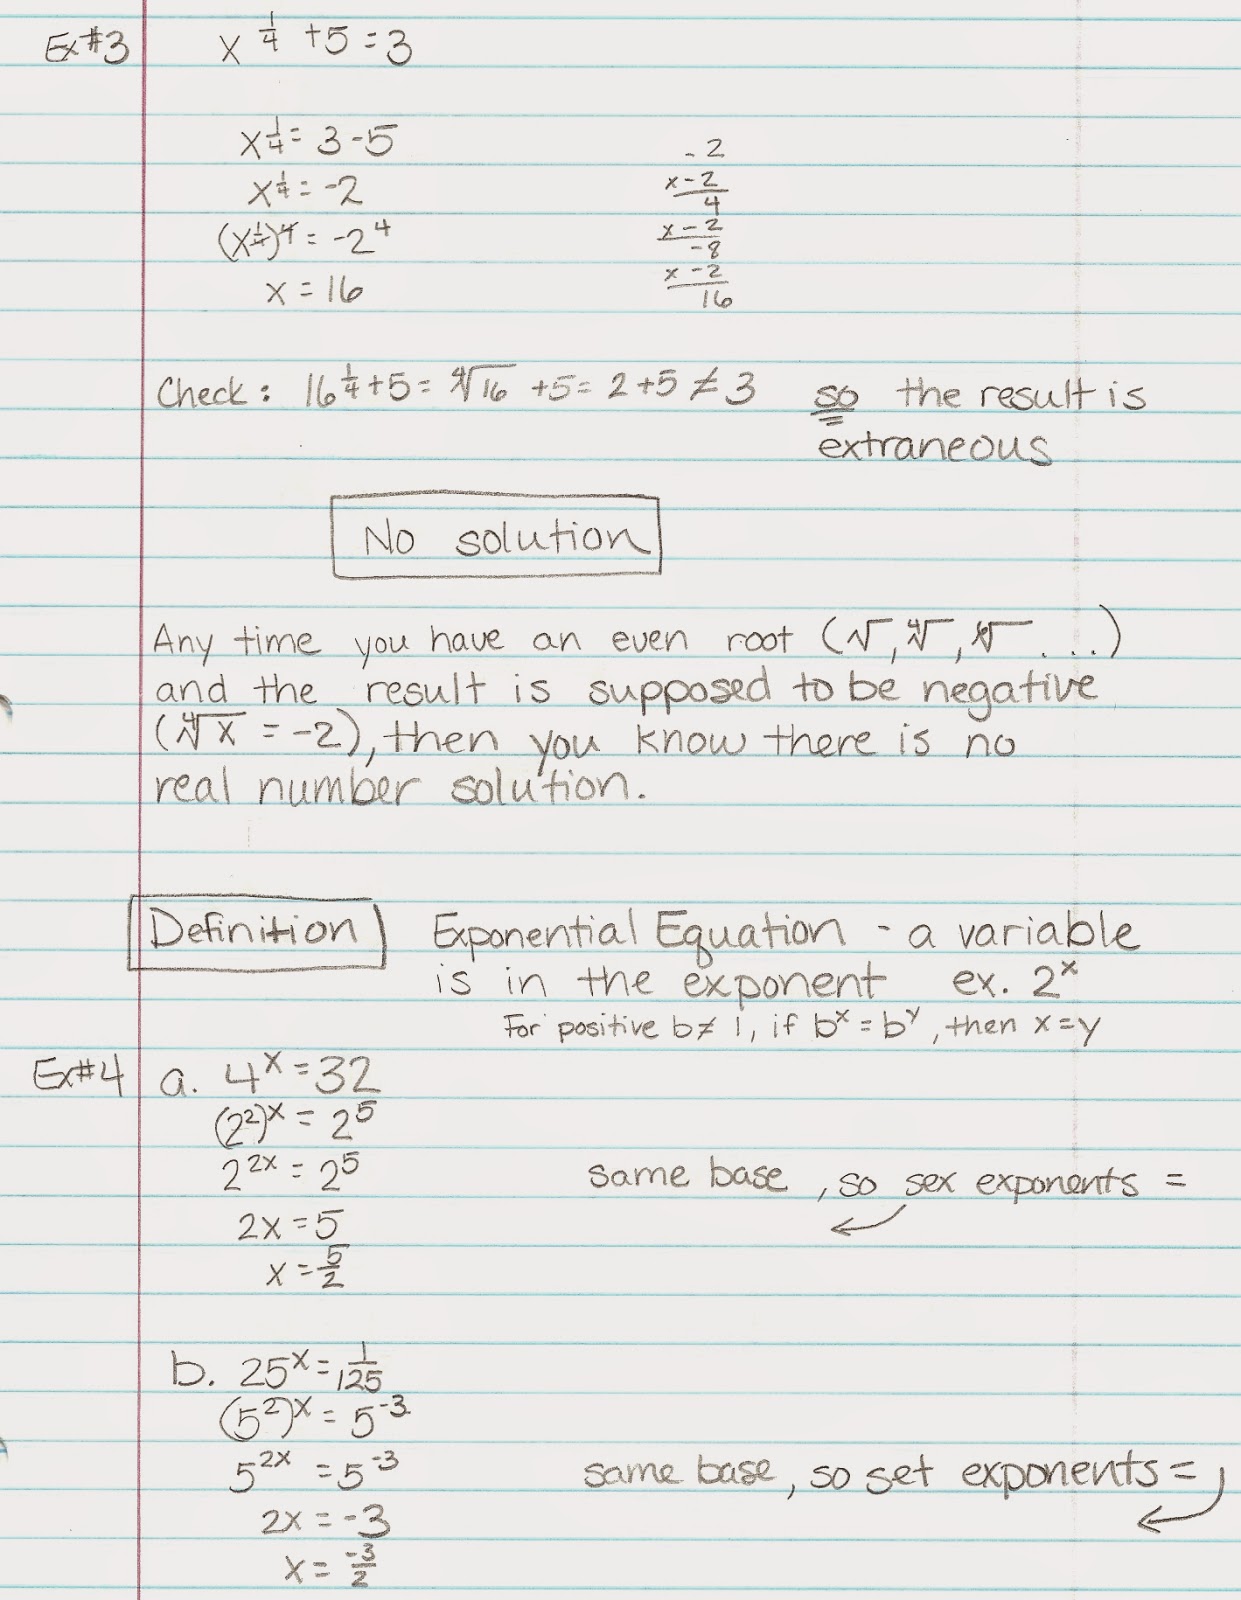 Ex#3 x^(1/4) + 5 = 3
x^(1/4) = 3 - 5
x^(1/4) = -2
(x^(1/4))^4 = -2^4
x = 16
-2
x -2
4
x -2
-8
x -2
16
Check: 16^(1/4) + 5 = ∜16 + 5 = 2 + 5 ≠ 3 so the result is
extraneous
No solution
Any time you have an even root (√, ∜, ⁶√ ...)
and the result is supposed to be negative
(∜x = -2), then you know there is no
real number solution.
Definition Exponential Equation - a variable
is in the exponent ex. 2^x
For positive b ≠ 1, if b^x = b^y, then x = y
Ex#4 a. 4^x = 32
(2^2)^x = 2^5
2^(2x) = 2^5 same base, so sex exponents =
2x = 5
x = 5/2
b. 25^x = 1/125
(5^2)^x = 5^-3
5^(2x) = 5^-3 same base, so set exponents =
2x = -3
x = -3/2